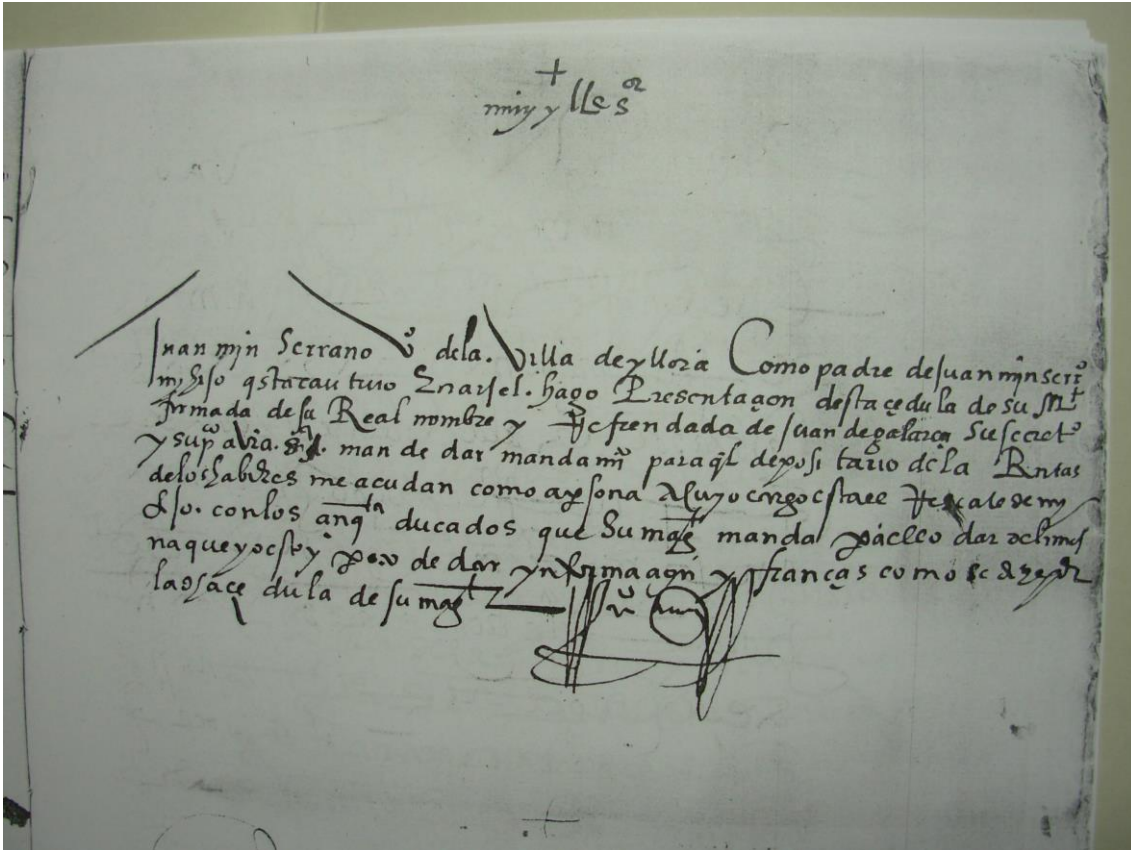 +
muy ylle sor
Juan min Serrano vo dela. Villa de yllora Como padre de Juan mjn serro
mj hijo q sta cautivo En arjel. hago Presentaçion desta çedula de su Mt
firmada de su Real nombre y Refrendada de Juan de galarça su secreto
y supco a V. mande dar mandamo para ql depositario dela Rentas
delos habizes me acudan como a persona a cuyo cargo esta el Rescate de my
hijo. con los çinqta ducados que Su magt manda para ello dar de limos
na que yo estoy presto de dar ynformaçion y franças como se dize por
la dha çedula de su magt